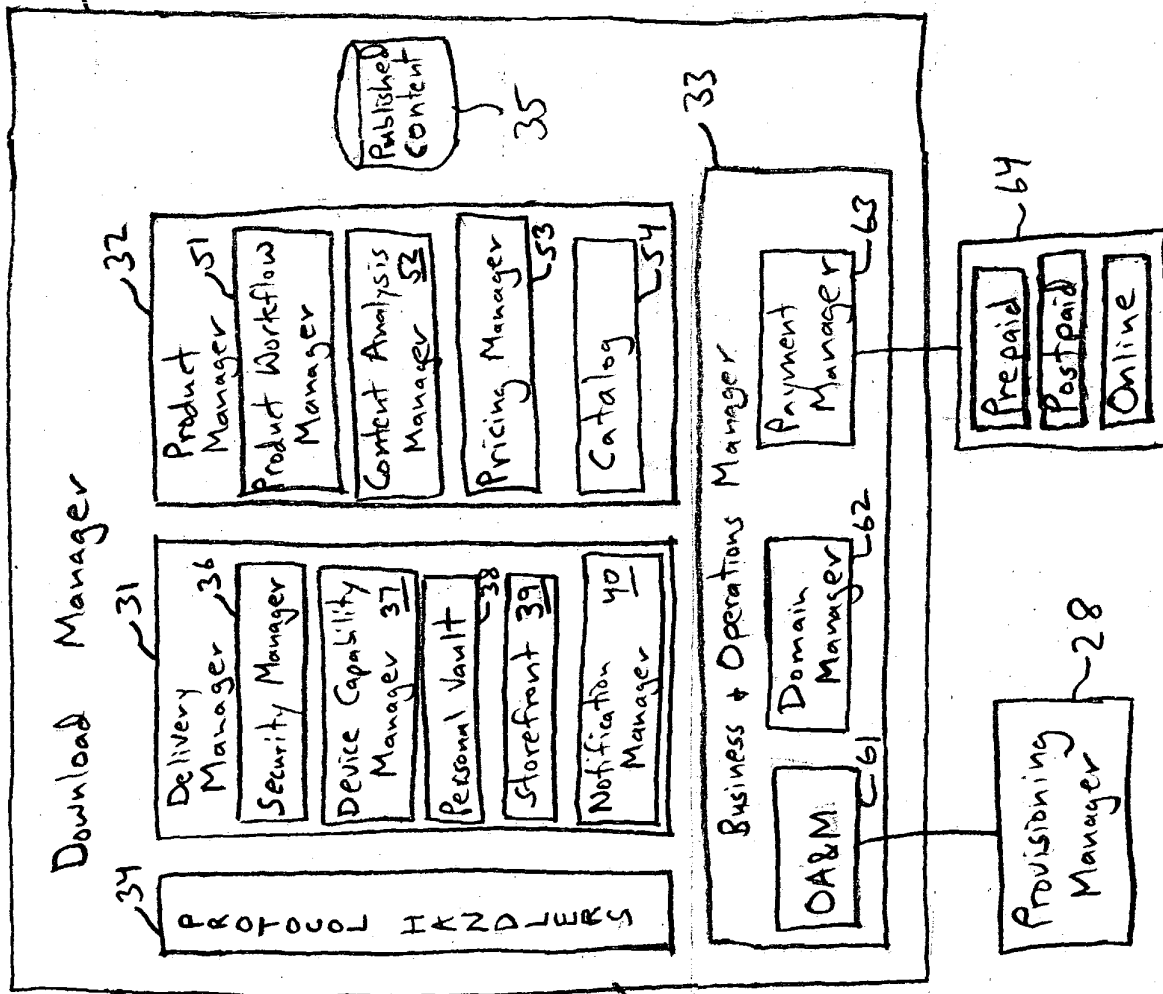 Download Manager
34
PROTOCOL HANDLERS
31
Delivery
Manager
36
Security Manager
Device Capability
Manager 37
Personal Vault
38
Storefront 39
Notification 40
Manager
32
Product
Manager
51
Product Workflow
Manager
Content Analysis
Manager 52
Pricing Manager
53
Catalog
54
Published
Content
35
33
Business & Operations Manager
OA&M
61
Domain
Manager
62
Payment
Manager
63
Provisioning
Manager
28
64
Prepaid
Postpaid
Online